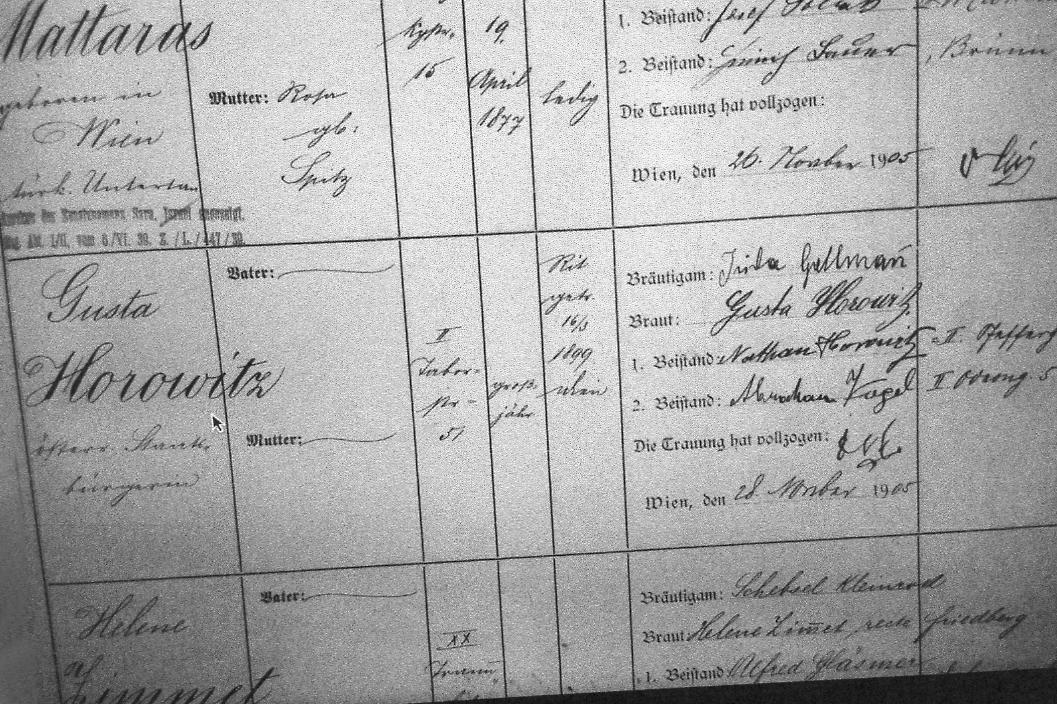 Mattaras
geboren in
Wien
türk. Untertan
Mutter: Rosa
gb:
Spitz
15
19.
April
1877
ledig
1. Beistand: Josef
2. Beistand: Heinrich Lauer, Brünn
Die Trauung hat vollzogen:
Wien, den 26. November 1905
Gusta
Horowitz
österr. Staats-
bürgerin
Vater:
Mutter:
II
Tabor-
str-
51
groß-
jähr
Rit
getr.
16/3
1899
Wien
Bräutigam: Juda Gellman
Braut: Gusta Horowitz
1. Beistand: Nathan Horowitz II.
2. Beistand: Abraham Vogel II
Die Trauung hat vollzogen:
Wien, den 28. November 1905
Helene
Zimmet
Vater:
XX
Bräutigam: Schebsel Kleinrod
Braut: Helene Zimmet recte Friedberg
1. Beistand Alfred Gläsmer